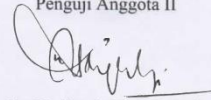 Penguji Anggota II